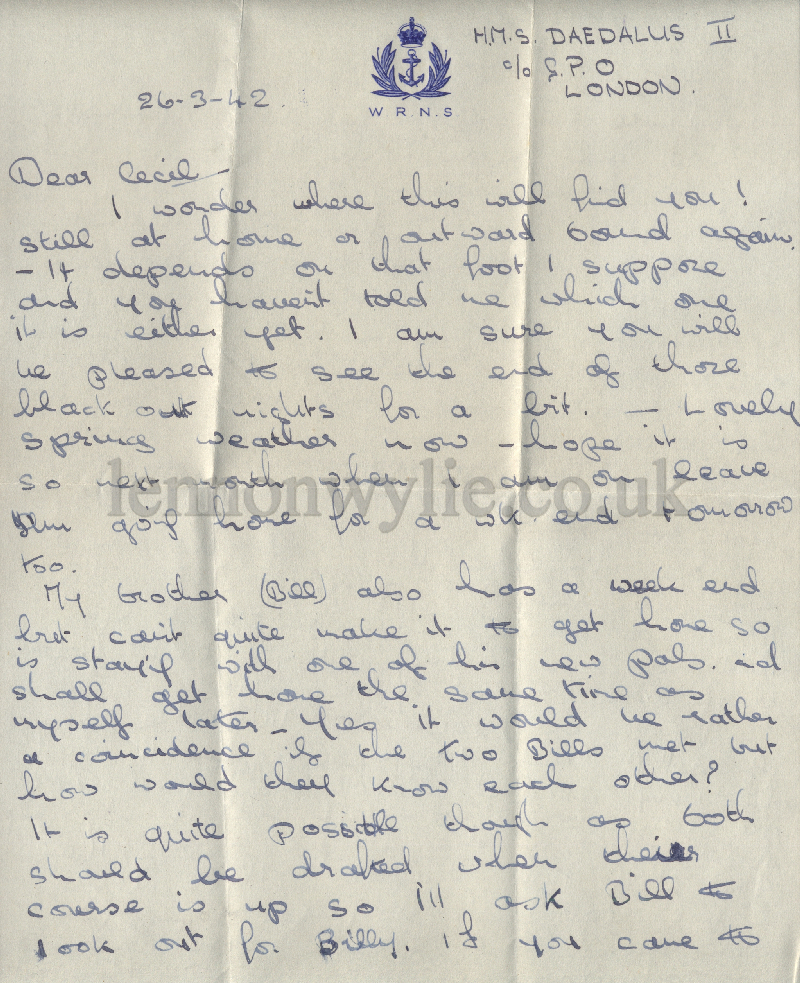 H.M.S. DAEDALUS II
c/o G.P.O
LONDON.
26-3-42.
W R N S
Dear Cecil -
I wonder where this will find you!
still at home or outward bound again.
- It depends on that foot I suppose
and you haven't told me which one
it is either yet. I am sure you will
be pleased to see the end of those
black out nights for a bit. - Lovely
spring weather now - hope it is
so next month when I am on leave
lennonwylie.co.uk
I'm going home for a wk. end tomorrow
too.
My brother (Bill) also has a week end
but can't quite make it to get home so
is stay'g with one of his new pals. and
shall get home the same time as
myself later - Yes it would be rather
a coincidence if the two Bills met but
how would they know each other?
It is quite possible though as both
should be drafted when their
course is up so I'll ask Bill to
look out for Billy. If you came to